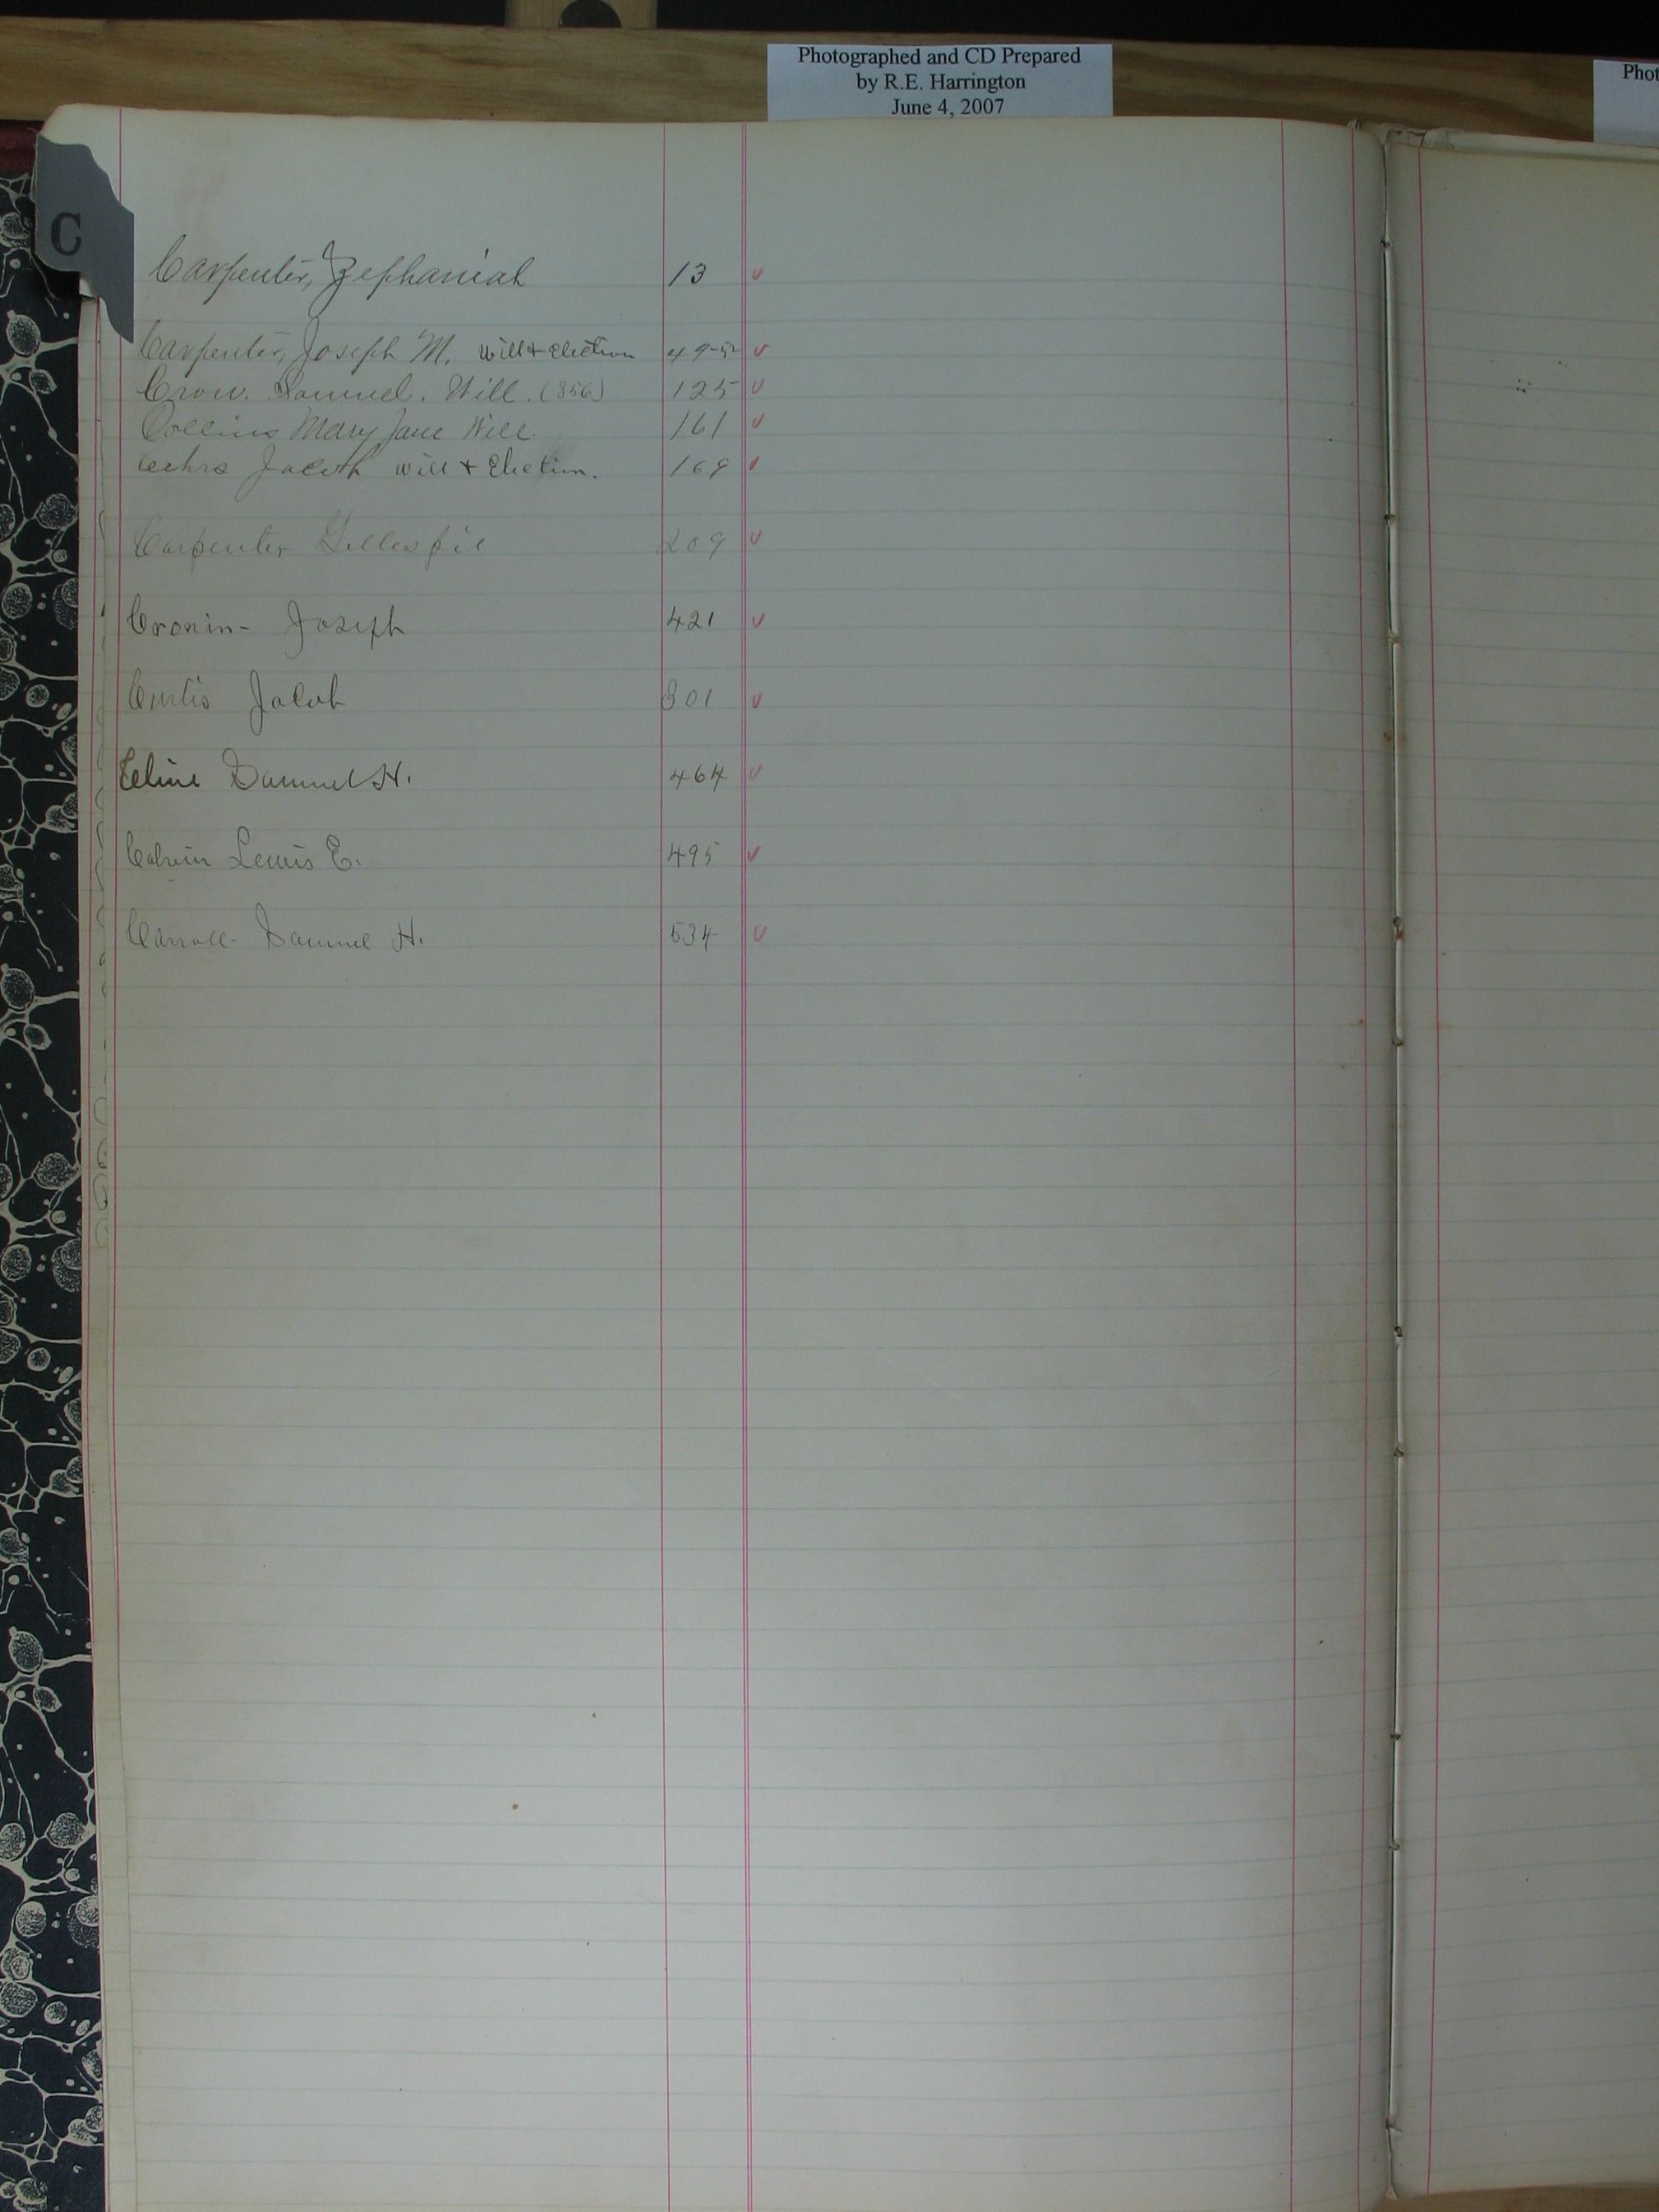 Photographed and CD Prepared
by R.E. Harrington
June 4, 2007
Phot
C
Carpenter, Zephaniah 13 ✓
Carpenter, Joseph M. Will & Election 49-52 ✓
Crow. Samuel. Will. (356) 125 ✓
Collins Mary Jane Will. 161 ✓
Jacob Will & Election. 169 ✓
Carpenter Gillespie 209 ✓
Cronin- Joseph 421 ✓
Curtis Jacob 301 ✓
Cline Samuel H. 464 ✓
Calvin Lewis E. 495 ✓
Carroll- Samuel H. 534 ✓